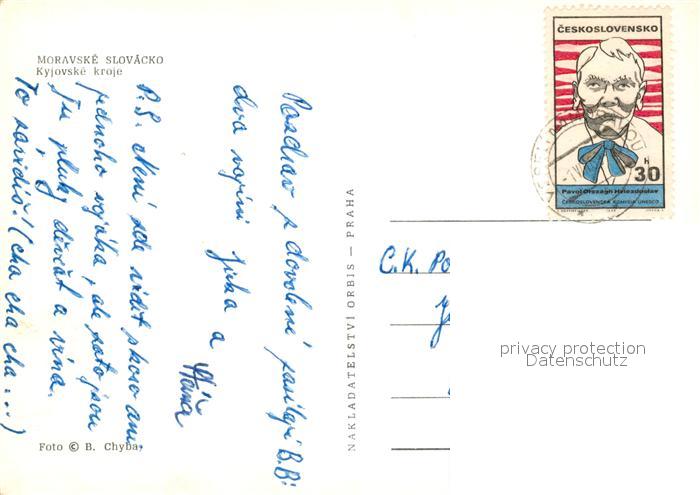 MORAVSKÉ SLOVÁCKO
Kyjovské kroje
Pozdrav z dovolené posílají B.B:
dva vojíni Jirka a
P.S. Není zde vidět skoro ani
jednoho vojáka, ale zato jsou
tu pluky děvčat a vína.
To závidíš! (cha cha cha...)
Foto © B. Chyba
NAKLADATELSTVÍ ORBIS — PRAHA
ČESKOSLOVENSKO
30 h
Pavol Országh Hviezdoslav
ČESKOSLOVENSKÁ KOMISIA UNESCO
C.K. Po
privacy protection
Datenschutz